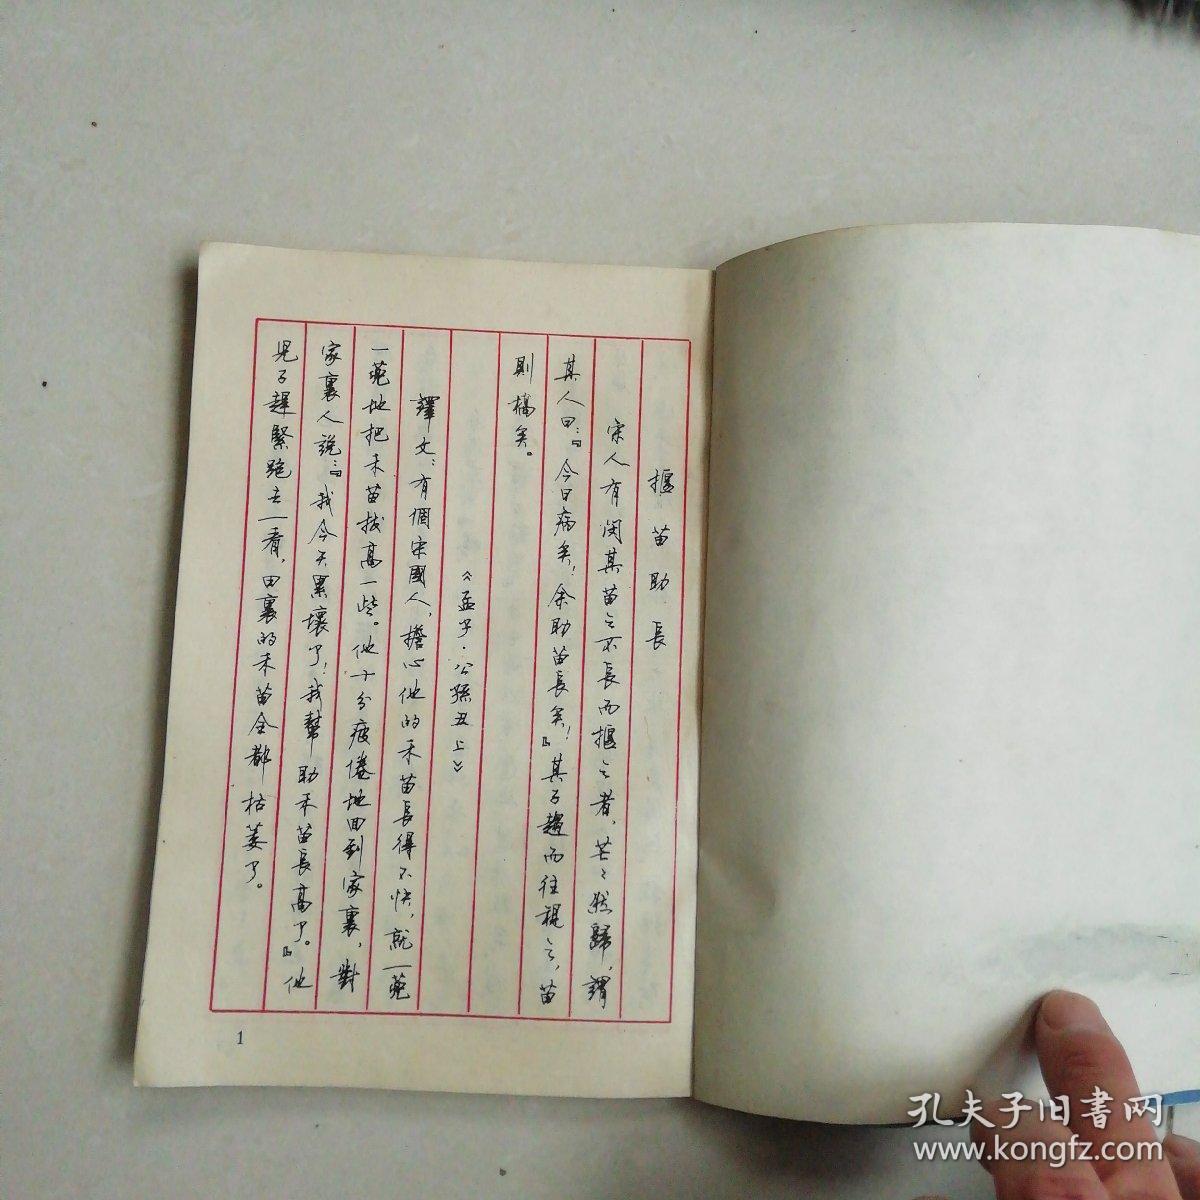 揠苗助長
宋人有闵其苗之不長而揠之者，芒芒然歸，謂
其人曰：『今日病矣！余助苗長矣！』其子趨而往視之，苗
則槁矣。
《孟子·公孫丑上》
譯文：有個宋國人，擔心他的禾苗長得不快，就一蔸
一蔸地把禾苗拔高一些。他十分疲倦地回到家裏，對
家裏人說：『我今天累壞了！我幫助禾苗長高了。』他
兒子趕緊跑去一看，田裏的禾苗全都枯萎了。
1
孔夫子旧書网
www.kongfz.com